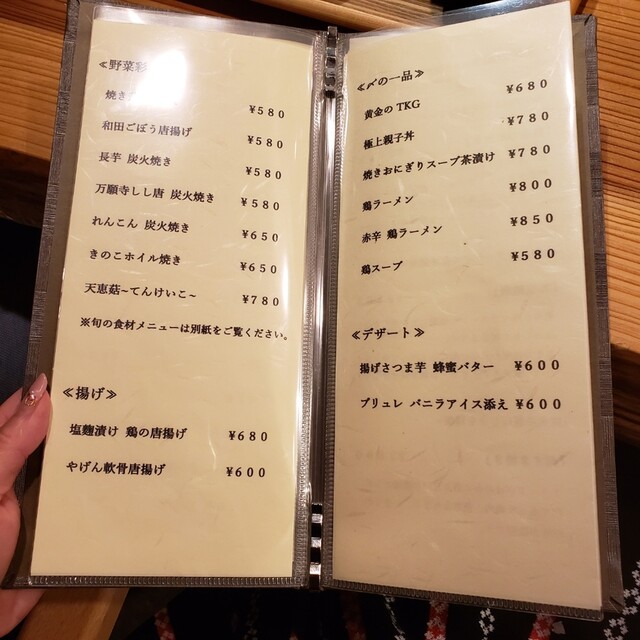 ≪野菜
焼き
¥580
和田ごぼう唐揚げ ¥580
長芋 炭火焼き ¥580
万願寺しし唐 炭火焼き ¥580
れんこん 炭火焼き ¥650
きのこホイル焼き ¥650
天恵菇~てんけいこ~ ¥780
※旬の食材メニューは別紙をご覧ください。
≪揚げ≫
塩麴漬け 鶏の唐揚げ ¥680
やげん軟骨唐揚げ ¥600
≪〆の一品≫
黄金の TKG ¥680
極上親子丼 ¥780
焼きおにぎりスープ茶漬け ¥780
鶏ラーメン ¥800
赤辛 鶏ラーメン ¥850
鶏スープ ¥580
≪デザート≫
揚げさつま芋 蜂蜜バター ¥600
ブリュレ バニラアイス添え ¥600